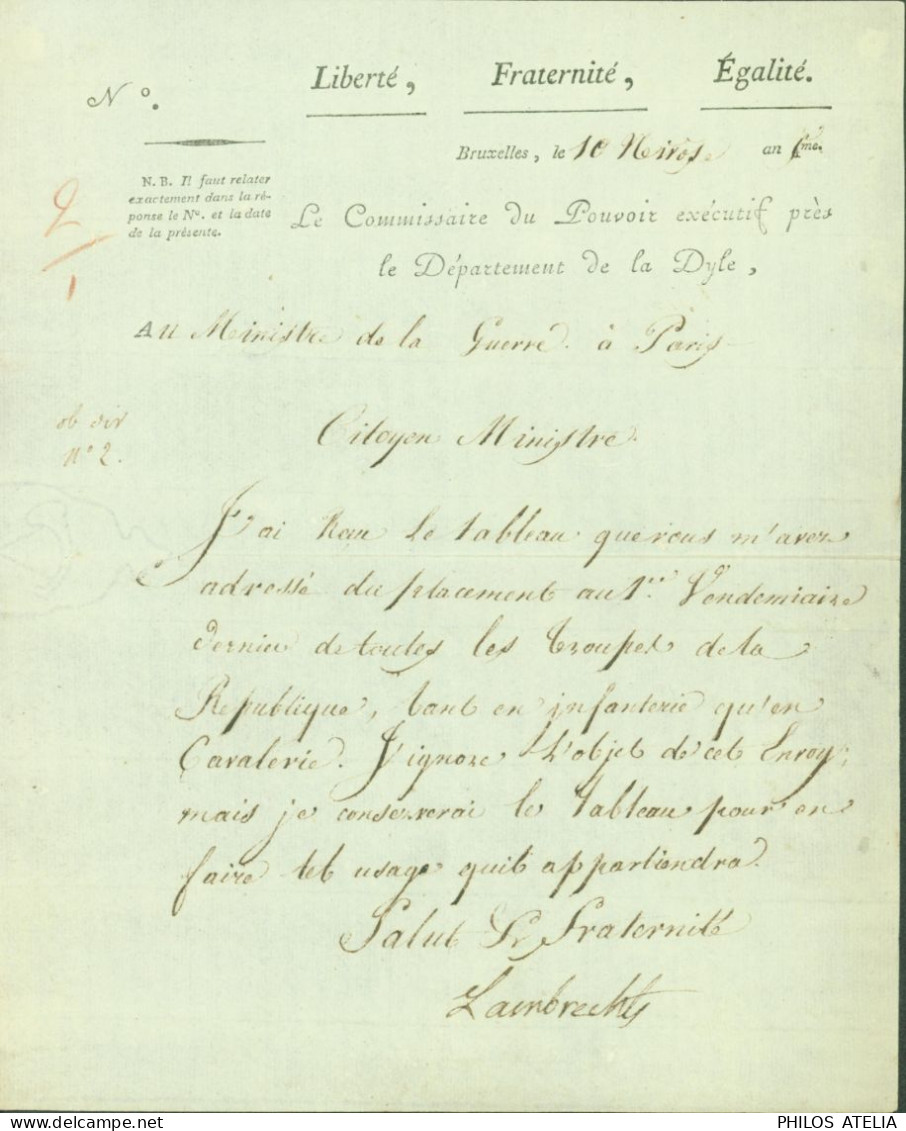 Liberté, Fraternité, Égalité.
N°.
Bruxelles, le 10 Nivose an me.
N. B. Il faut relater
exactement dans la ré-
ponse le N°. et la date
de la présente.
2
1
Le Commissaire du Pouvoir exécutif près
le Département de la Dyle,
Au Ministre de la Guerre à Paris
N° 2.
Citoyen Ministre.
J'ai Recu le tableau que vous m'avez
adressé du placement au 1er Vendemiaire
dernier de toutes les troupes de la
Republique, tant en infanterie qu'en
Cavalerie. J'ignore L'objet de cet Envoy;
mais je conserverai le tableau pour en
faire tel usage qu'il appartiendra.
Salut & Fraternité
Lambrechts
PHILOS ATELIA